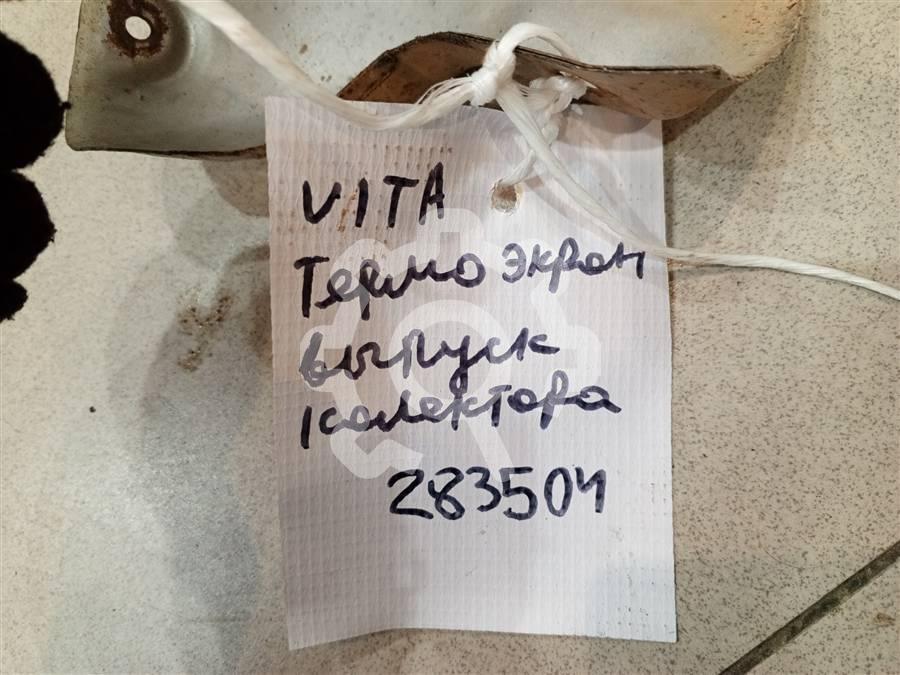 VITA
Термо экран
выпуск
колектора
283504